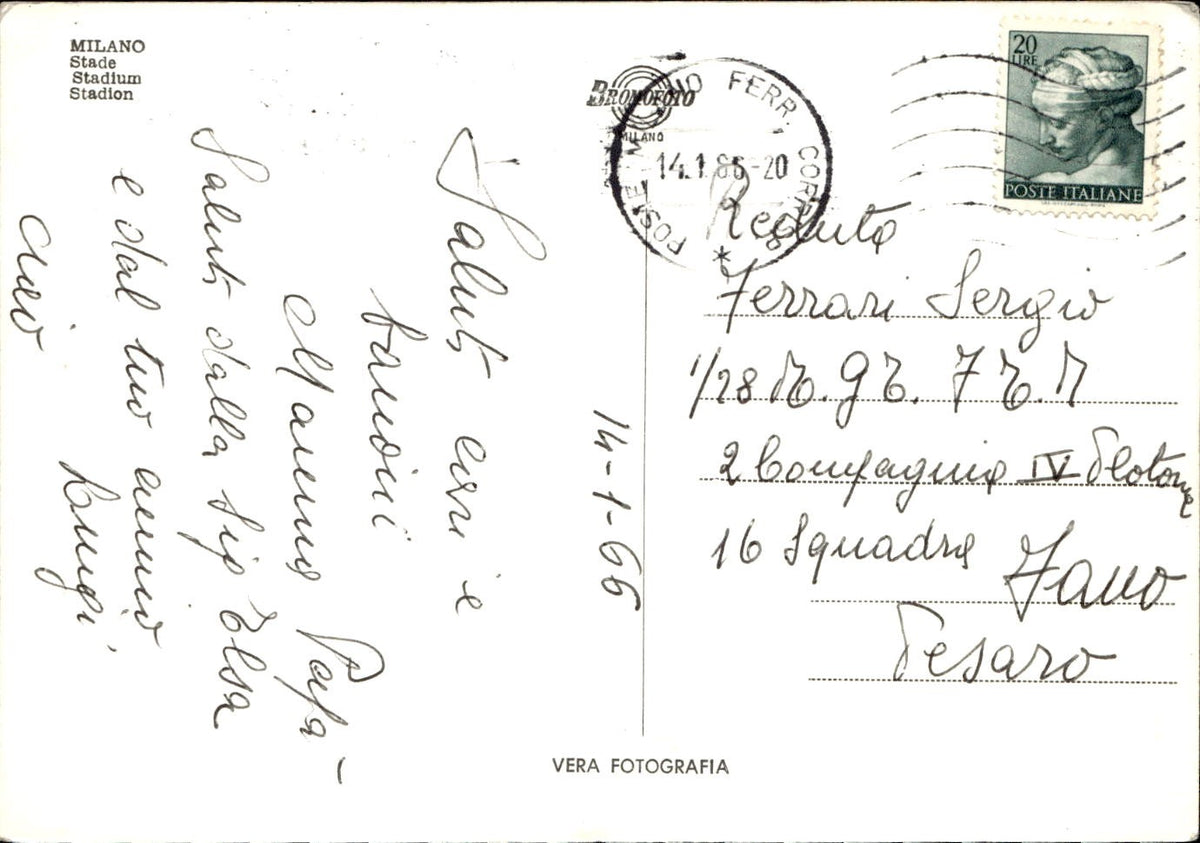 MILANO
Stade
Stadium
Stadion
BROMOFOTO
MILANO
POSTE MILANO FERR. CORRISP.
14.1.66-20
20
LIRE
POSTE ITALIANE
Saluti cari e
bacioni
Mamma Papà -
Saluti dalla Sig Elsa
e dal tuo amico
Luigi
ciao
14-1-66
Recluta
Ferrari Sergio
1/28
2 Compagnia IV Plotone
16 Squadra Fano
Pesaro
VERA FOTOGRAFIA